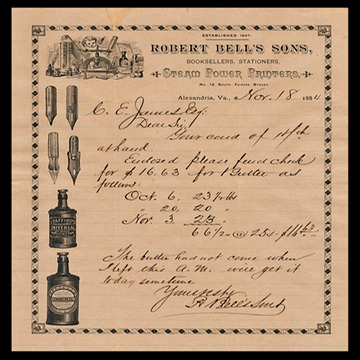 ESTABLISHED 1827.
ROBERT BELL'S SONS,
BOOKSELLERS, STATIONERS,
STEAM POWER PRINTERS,
No. 12 South Fairfax Street.
Alexandria, Va., Nov. 18 1884
C. E. James Esq.
Dear Sir,
Your card of 14th
at hand
Enclosed please find check
for $16.63 for Butter as
follows
Oct. 6. 23½ lbs
20. 20 "
Nov. 3. 23
66½ @ 25¢ $16 63
The butter had not come when
I left this A.M. will get it
today sometime
Yours resp
R. Bell's Sons
STAFFORD'S
UNIVERSAL